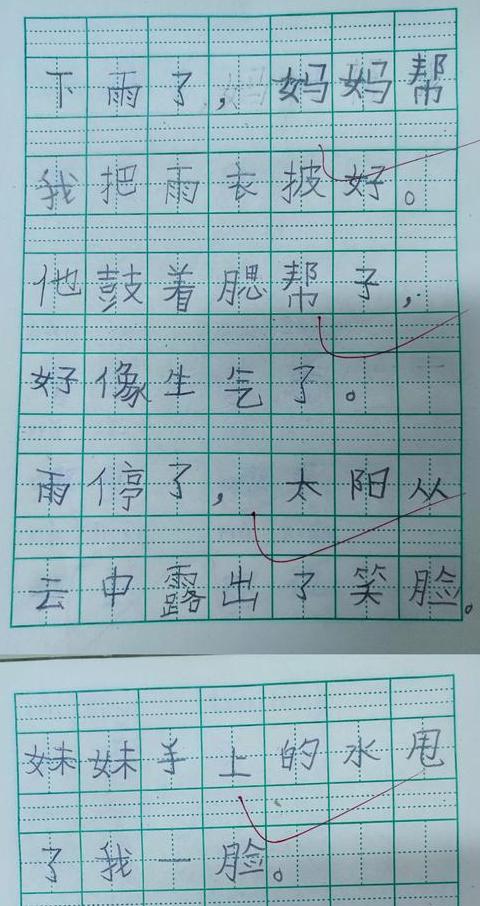 下雨了，妈妈帮
我把雨衣披好。
他鼓着腮帮子，
好像生气了。
雨停了，太阳从
云中露出了笑脸。
妹妹手上的水甩
了我一脸。